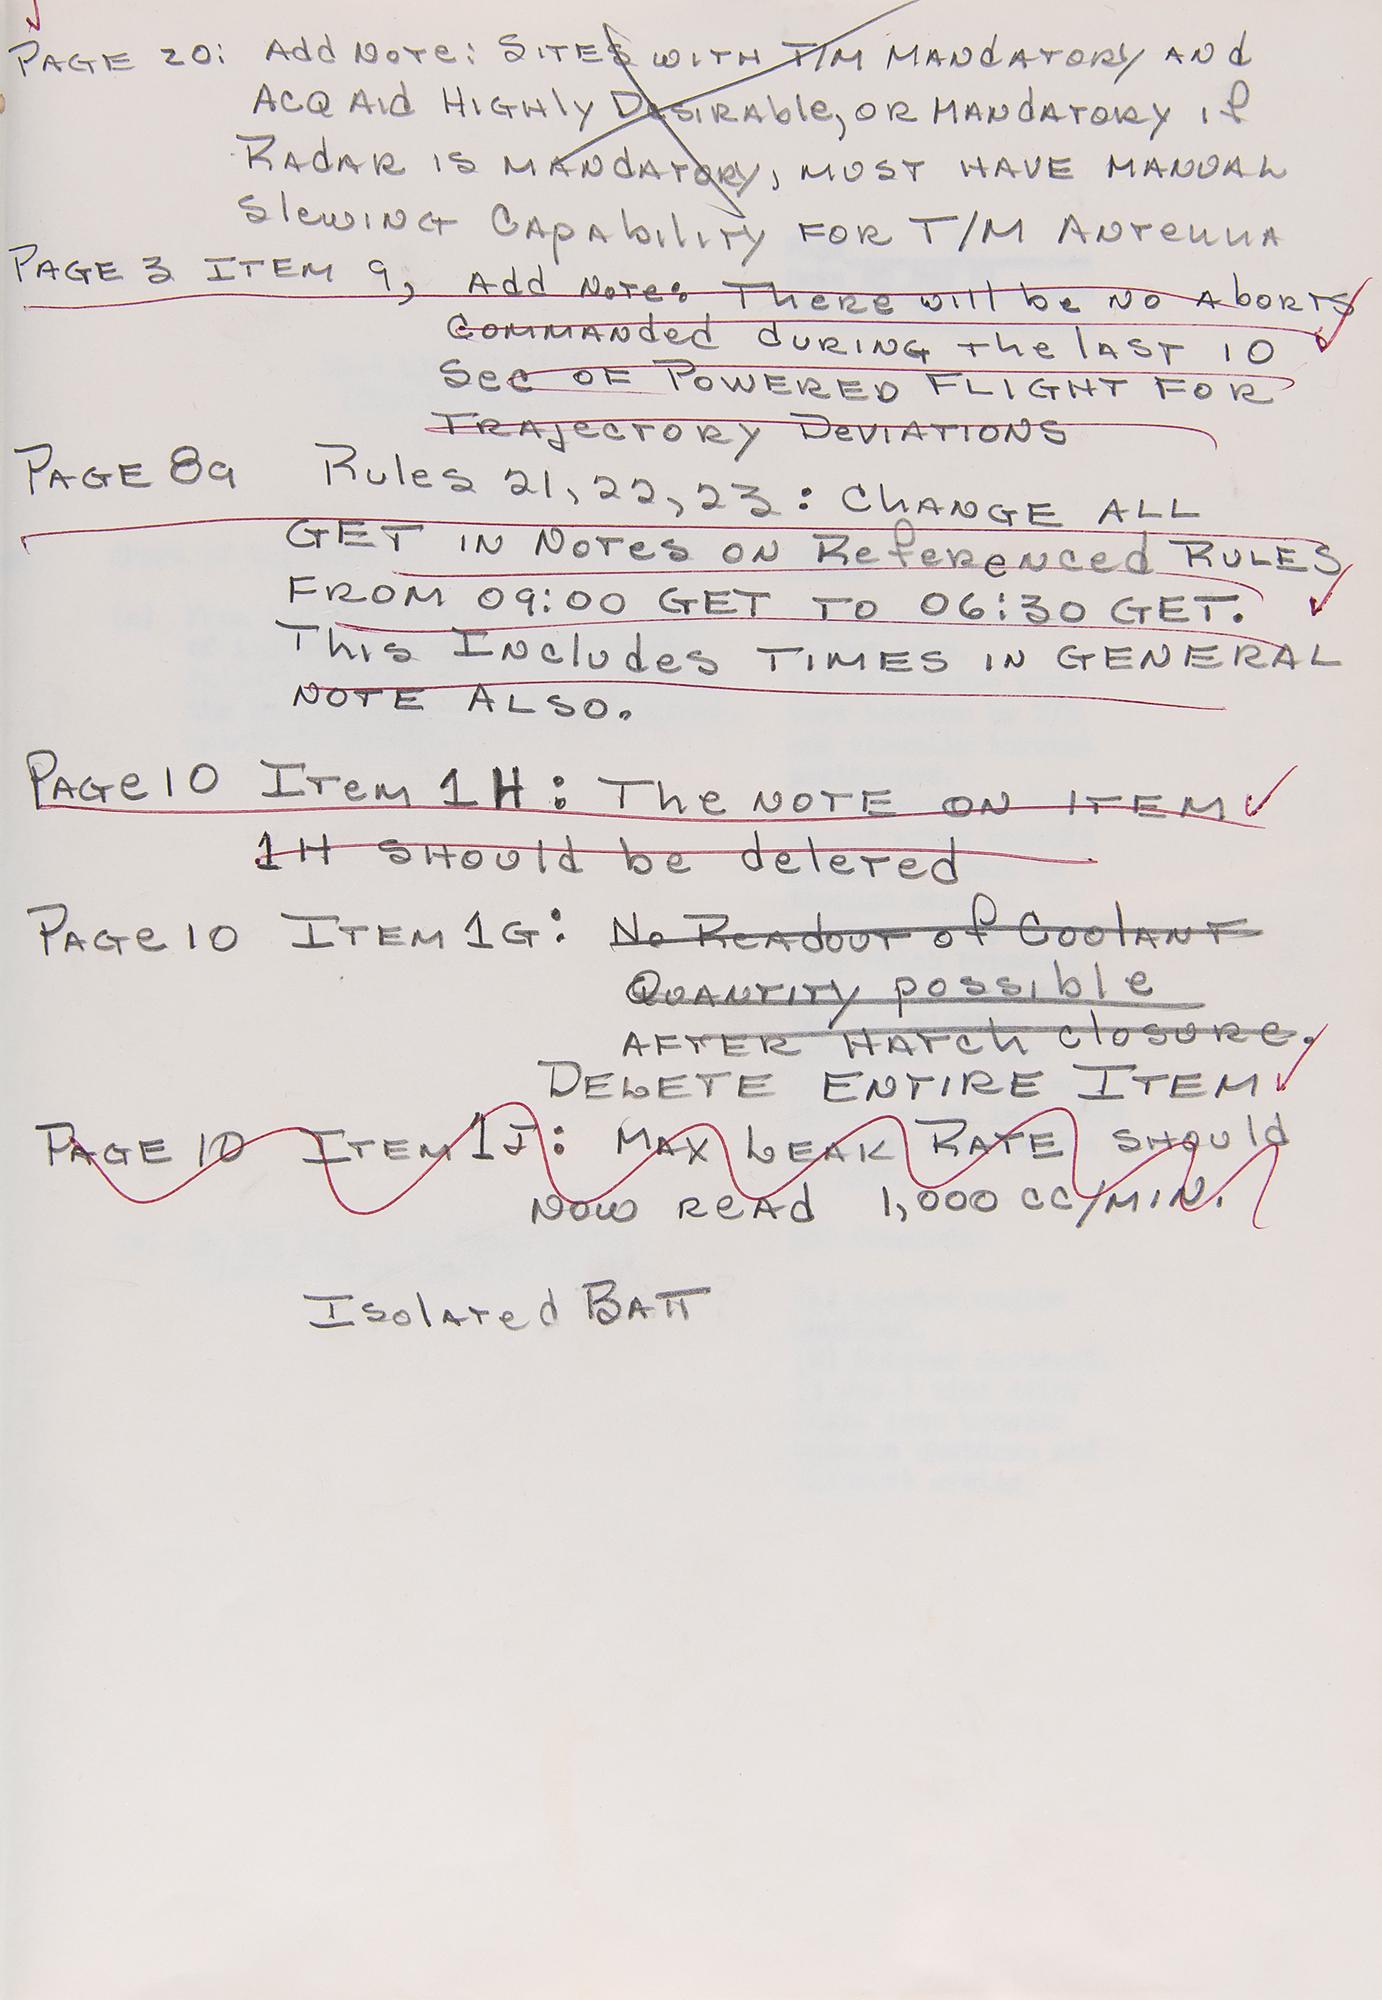 PAGE 20: Add Note: SITES WITH T/M MANDATORY AND
ACQ AID HIGHLY DESIRABLE, OR MANDATORY IF
RADAR IS MANDATORY, MUST HAVE MANUAL
Slewing Capability FOR T/M ANTENNA
PAGE 3 ITEM 9, Add Note: There will be NO Aborts
Commanded during the last 10
Sec OF POWERED FLIGHT FOR
TRAJECTORY DEVIATIONS
PAGE 8a Rules 21, 22, 23: CHANGE ALL
GET IN NOTES ON Referenced RULES
FROM 09:00 GET TO 06:30 GET.
This Includes TIMES IN GENERAL
NOTE ALSO.
PAGE 10 Item 1H: The NOTE ON ITEM
1H SHOULD be deleted
PAGE 10 ITEM 1G: No Readout of Coolant
QUANTITY possible
AFTER HATCH closure.
DELETE ENTIRE ITEM
PAGE 10 ITEM 1J: MAX LEAK RATE SHOULD
NOW READ 1,000 CC/MIN.
Isolated BATT